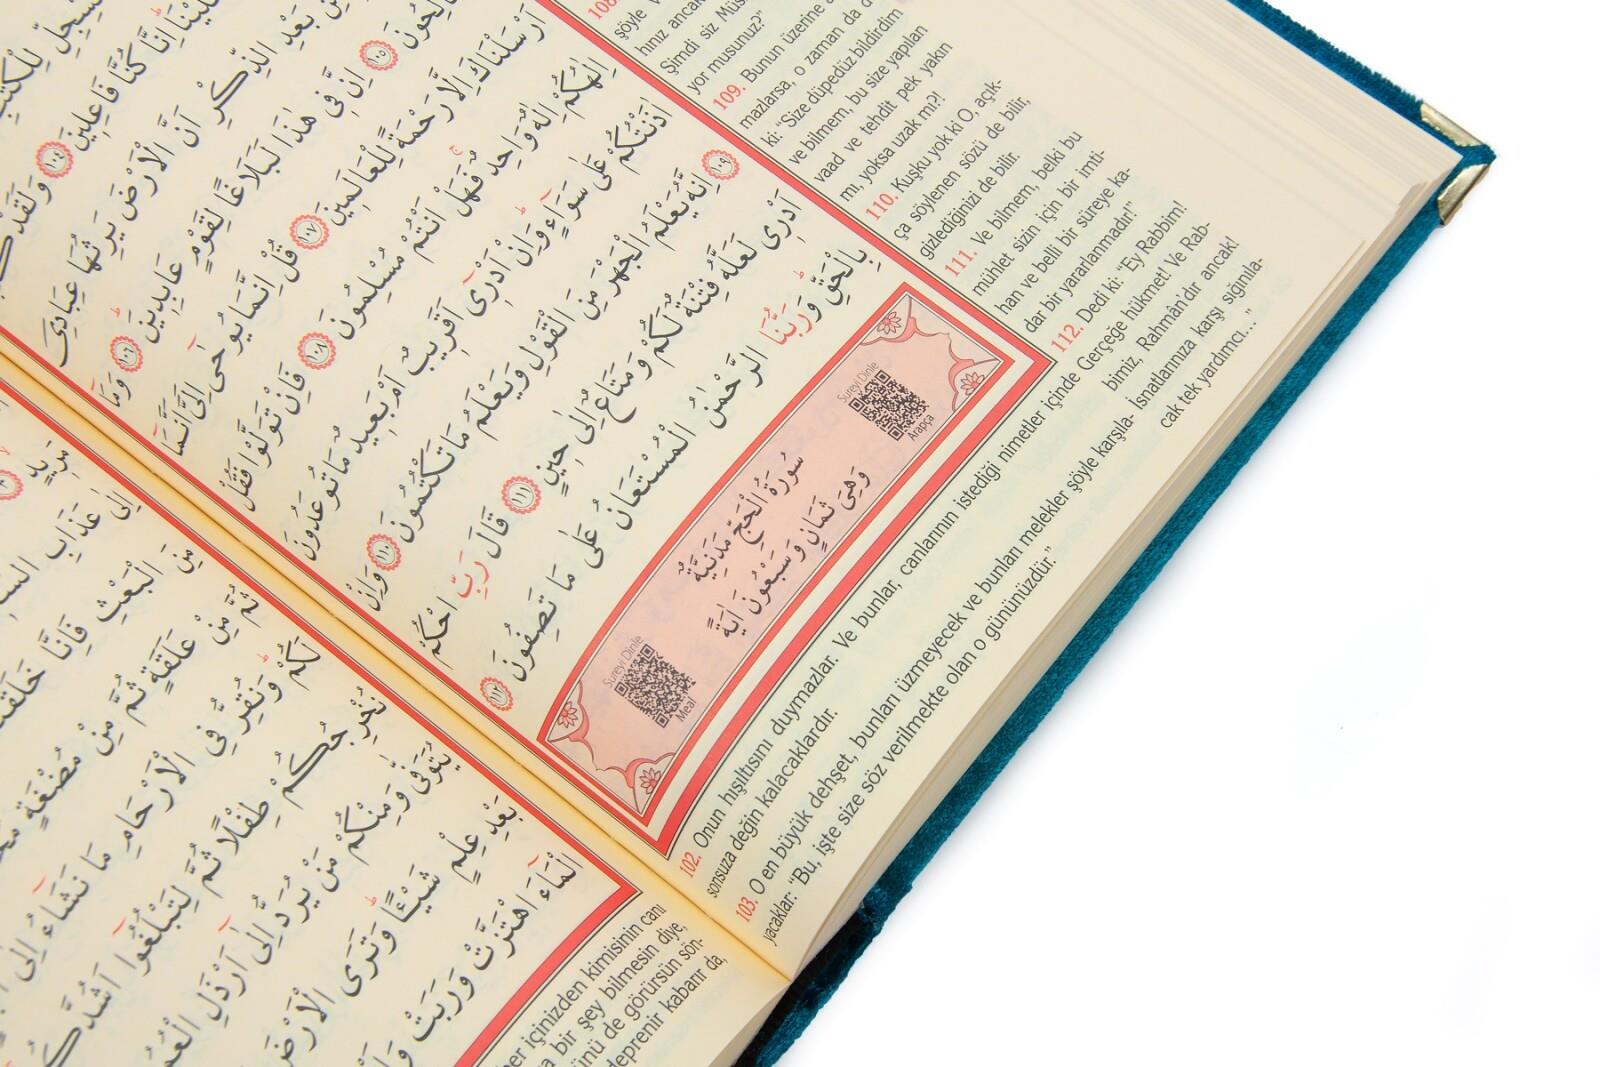 السِّجِلِّ لِلْكُتُبِ
اِنَّا كُنَّا فَاعِلِينَ ﴿١٠٤﴾ وَلَقَدْ كَتَبْنَا
مِنْ بَعْدِ الذِّكْرِ اَنَّ الْاَرْضَ يَرِثُهَا عِبَادِيَ
﴿١٠٥﴾ اِنَّ فِي هٰذَا لَبَلَاغًا لِقَوْمٍ عَابِدِينَ ﴿١٠٦﴾ وَمَٓا
اَرْسَلْنَاكَ اِلَّا رَحْمَةً لِلْعَالَمِينَ ﴿١٠٧﴾ قُلْ اِنَّمَا يُوحٰٓى اِلَيَّ اَنَّمَٓا
اِلٰهُكُمْ اِلٰهٌ وَاحِدٌ فَهَلْ اَنْتُمْ مُسْلِمُونَ ﴿١٠٨﴾ فَاِنْ تَوَلَّوْا فَقُلْ
اٰذَنْتُكُمْ عَلٰى سَوَٓاءٍ وَاِنْ اَدْر۪ٓي اَقَرِيبٌ اَمْ بَعِيدٌ مَا تُوعَدُونَ
﴿١٠٩﴾ اِنَّهُ يَعْلَمُ الْجَهْرَ مِنَ الْقَوْلِ وَيَعْلَمُ مَا تَكْتُمُونَ ﴿١١٠﴾ وَاِنْ
اَدْرِي لَعَلَّهُ فِتْنَةٌ لَكُمْ وَمَتَاعٌ اِلٰى حِينٍ ﴿١١١﴾ قَالَ رَبِّ احْكُمْ
بِالْحَقِّ وَرَبُّنَا الرَّحْمٰنُ الْمُسْتَعَانُ عَلٰى مَا تَصِفُونَ ﴿١١٢﴾
سُورَةُ الْحَجِّ مَدَنِيَّةٌ
وَهِيَ ثَمَانٍ وَسَبْعُونَ اٰيَةً
Sureyi Dinle
Arapça
Sureyi Dinle
Meal
108.
hınız ancak
Şimdi siz Müs
yor musunuz?"
109. Bunun üzerine
mazlarsa, o zaman da
ki: "Size düpedüz bildirdim
ve bilmem, bu size yapılan
vaad ve tehdit pek yakın
mı, yoksa uzak mı?!
110. Kuşku yok ki O, açık-
ça söylenen sözü de bilir,
gizlediğinizi de bilir.
111. Ve bilmem, belki bu
mühlet sizin için bir imti-
han ve belli bir süreye ka-
dar bir yararlanmadır!"
112. Dedi ki: "Ey Rabbim!
Gerçeğe hükmet! Ve Rab-
bimiz, Rahmân'dır ancak!
İsnatlarınıza karşı sığınıla-
cak tek yardımcı..."
102. Onun hışıltısını duymazlar. Ve bunlar, canlarının istediği nimetler içinde
sonsuza değin kalacaklardır.
103. O en büyük dehşet, bunları üzmeyecek ve bunları melekler şöyle karşıla-
yacaklar: "Bu, işte size söz verilmekte olan o gününüzdür."
مَرِيدٍ
اِلٰى عَذَابِ
مِنَ الْبَعْثِ فَاِنَّا
ثُمَّ مِنْ عَلَقَةٍ ثُمَّ مِنْ مُضْغَةٍ
لَكُمْ وَنُقِرُّ فِي الْاَرْحَامِ مَا نَشَٓاءُ اِلٰٓى
نُخْرِجُكُمْ طِفْلًا ثُمَّ لِتَبْلُغُٓوا اَشُدَّكُمْ
يُتَوَفّٰى وَمِنْكُمْ مَنْ يُرَدُّ اِلٰٓى اَرْذَلِ الْعُمُرِ
بَعْدِ عِلْمٍ شَيْـًٔا وَتَرَى الْاَرْضَ
الْمَٓاءَ اهْتَزَّتْ وَرَبَتْ
içinizden kimisinin canı
bir şey bilmesin diye,
de görürsün sön-
deprenir kabarır da,